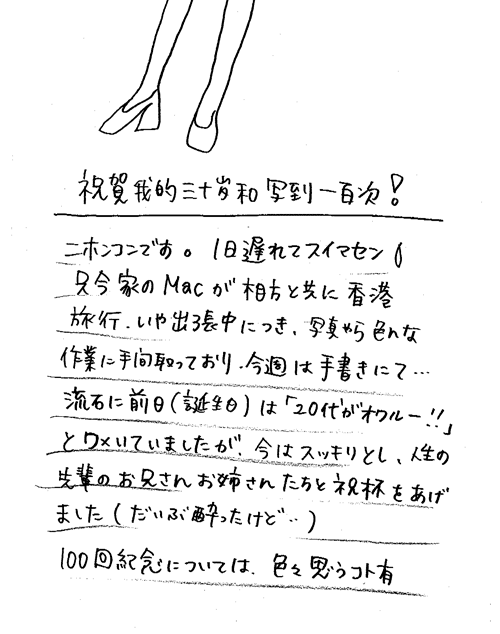 祝賀我的三十岁和写到一百次!
ニホンコンです。1日遅れてスイマセン
只今家のMacが相方と共に香港
旅行、いや出張中につき、写真やら色んな
作業に手間取っており、今週は手書きにて…
流石に前日(誕生日)は「20代がオワルー!!」
とワメいていましたが、今はスッキリとし、人生の
先輩のお兄さんお姉さんたちと祝杯をあげ
ました(だいぶ酔ったけど…)
100回紀念については、色々思うコト有